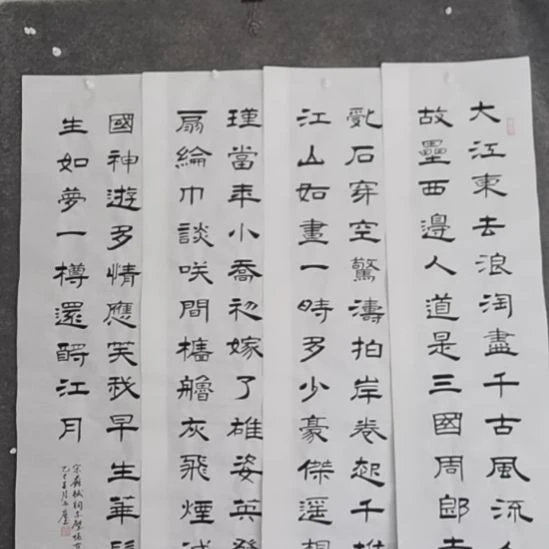 大江東去浪淘盡千古風流人
故壘西邊人道是三國周郎赤
亂石穿空驚濤拍岸卷起千堆
江山如畫一時多少豪傑遥想
瑾當年小喬初嫁了雄姿英發
扇綸巾談咲間檣艣灰飛煙滅
國神遊多情應笑我早生華髮
生如夢一樽還酹江月